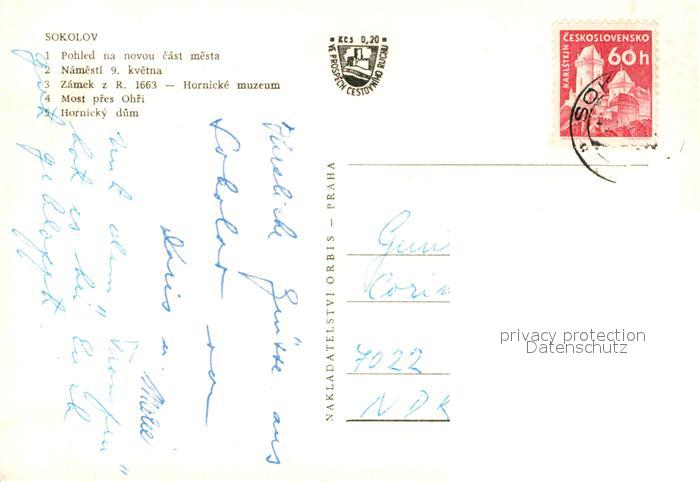 SOKOLOV
1 Pohled na novou část města
2 Náměstí 9. května
3 Zámek z R. 1663 — Hornické muzeum
4 Most přes Ohři
5 Hornický dům
Kčs 0,20
VE PROSPĚCH CESTOVNÍHO RUCHU
ČESKOSLOVENSKO
KARLŠTEJN
60h
SOK
NAKLADATELSTVÍ ORBIS — PRAHA
Herzliche Grüsse aus
Sokolov von
Doris u.
mit dem "Trampen"
hat es bei Euch
geklappt
7022
privacy protection
Datenschutz